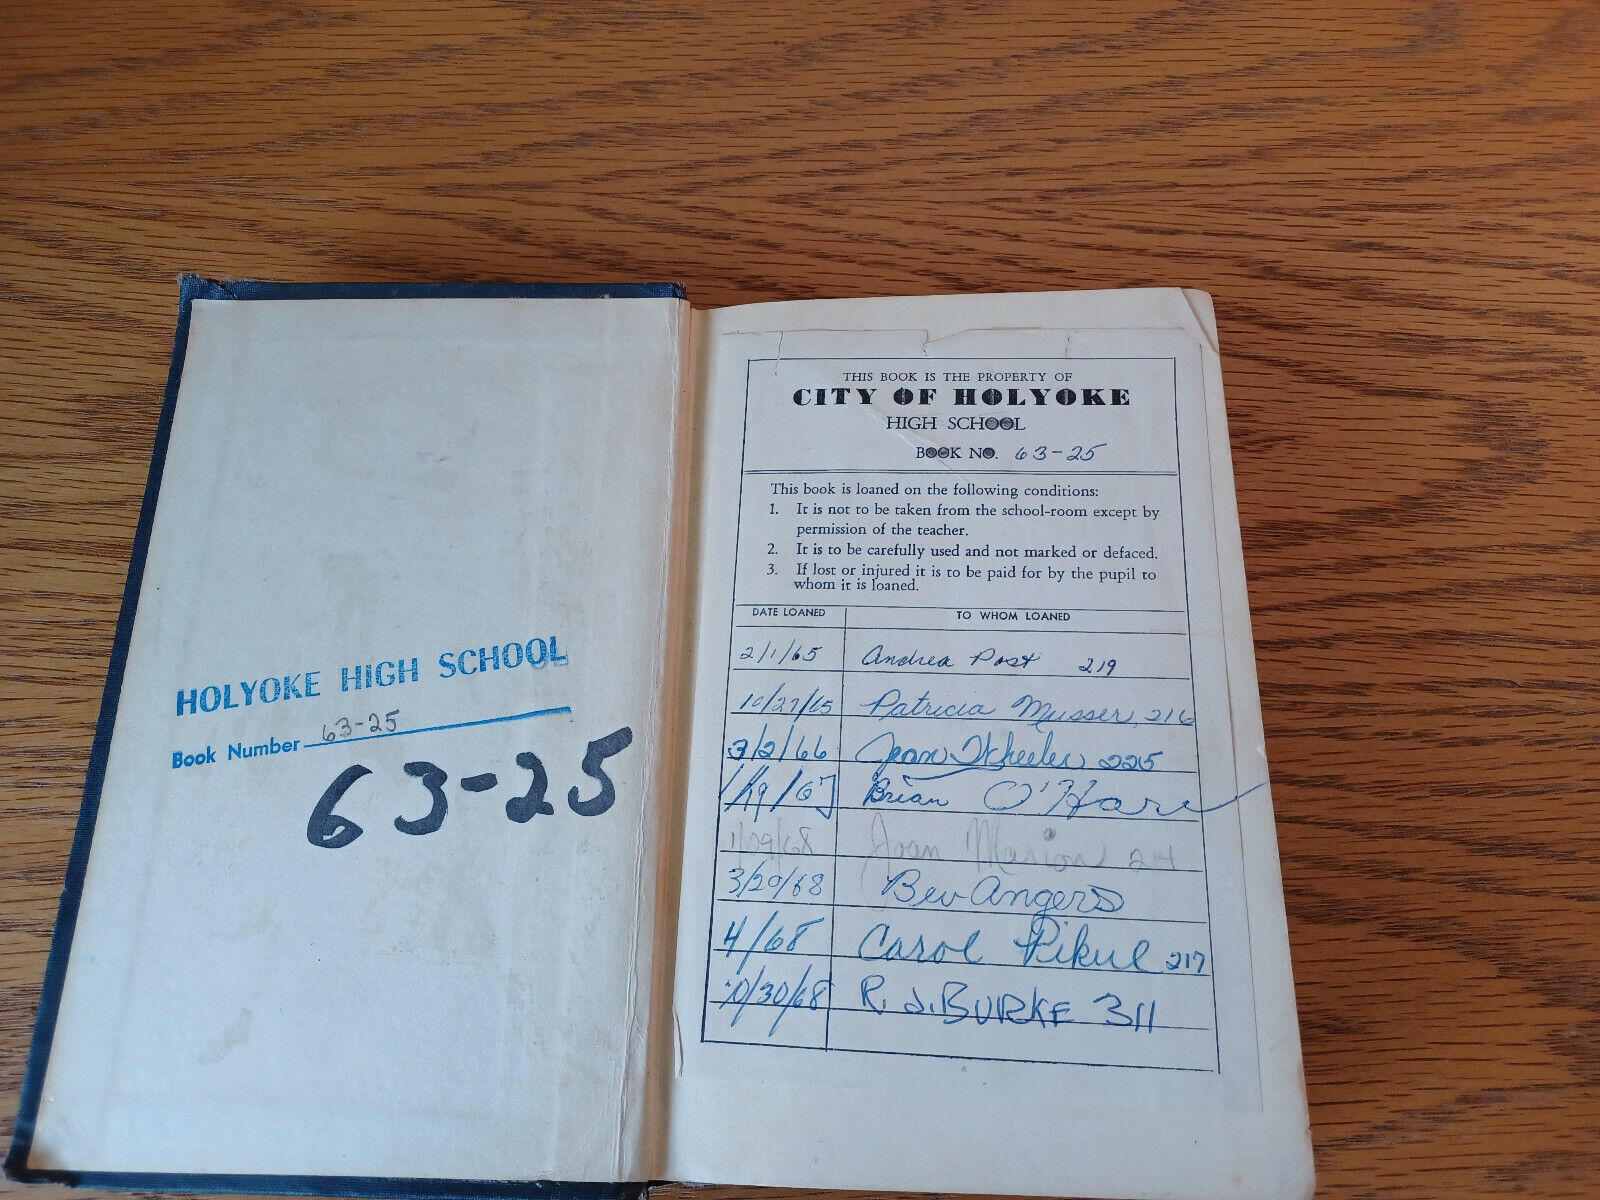 HOLYOKE HIGH SCHOOL
Book Number 63-25
63-25
THIS BOOK IS THE PROPERTY OF
CITY OF HOLYOKE
HIGH SCHOOL
BOOK NO. 63-25
This book is loaned on the following conditions:
1. It is not to be taken from the school-room except by
permission of the teacher.
2. It is to be carefully used and not marked or defaced.
3. If lost or injured it is to be paid for by the pupil to
whom it is loaned.
DATE LOANED TO WHOM LOANED
2/1/65 Andrea Post 219
10/27/65 Patricia Musser, 216
3/2/66 Jean Wheeler 225
1/19/67 Brian O'Hare
1/29/68 Joan Marion 214
3/20/68 Bev Angers
4/68 Carol Pikul 217
10/30/68 R. J. BURKE 311